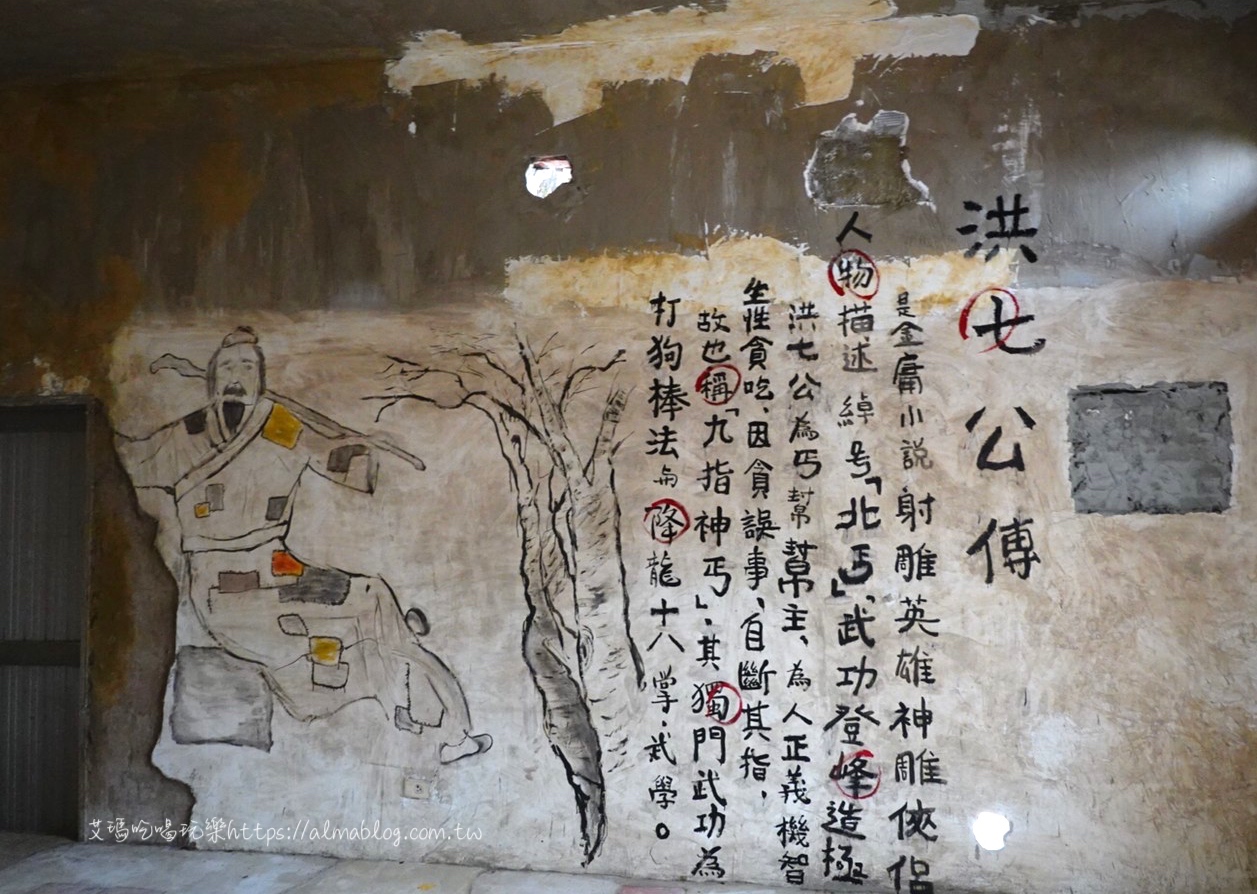 洪七公傳
是金庸小說射雕英雄神雕俠侶
人物描述綽号「北丐」、武功登峰造極
洪七公為丐幫幫主、為人正義機智
生性貪吃、因貪誤事、自斷其指,
故也稱「九指神丐」、其獨門武功為
打狗棒法与降龍十八掌.武學。
艾瑪吃喝玩樂https://almablog.com.tw